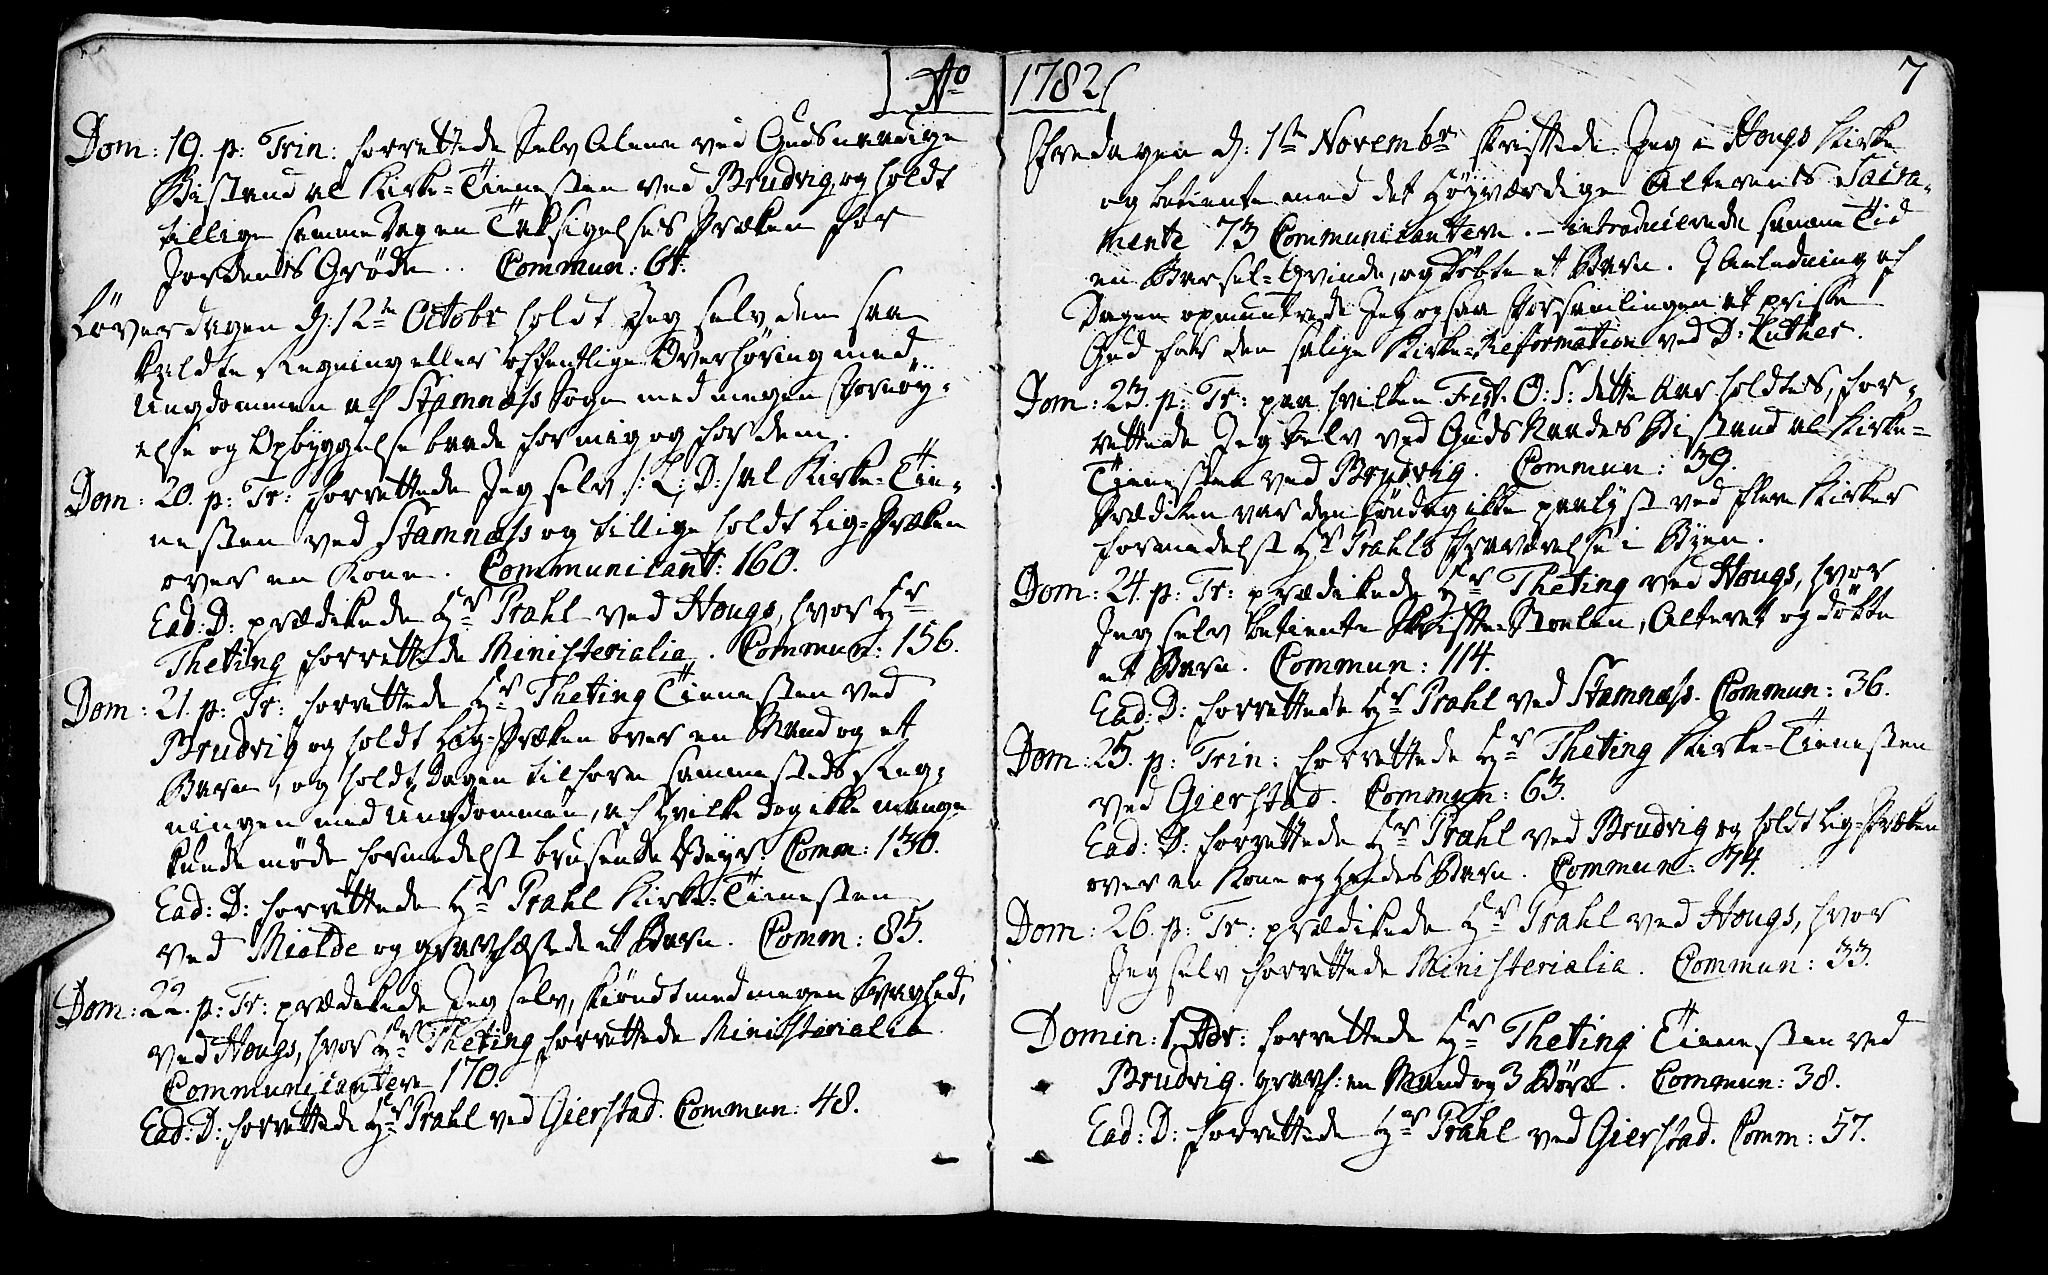 Ao 1782
7
Dom: 19. p: Trin: forrettede Selv Alene ved Guds naadige
Bistand al Kirke=Tienesten ved Brudvig, og holdt
tillige samme Dagen Taksigelses Præken for
Jordens Grøde. Commun: 64.
Löverdagen d: 12te Octobr holdt Jeg selv den saa
kaldte Regning eller offentlige Overhöring med
Ungdommen af Stamnæss Sogn med megen Fornöy=
else og Opbyggelse baade for mig og for dem.
Dom: 20. p: Tr: forrettede Jeg selv /: L: D: / al Kirke=Tie=
nesten ved Stamnæss og tillige holdt Lig=Præken
over en Kone. Communicant: 160.
Ead: D: prædikede Hr Prahl ved Hougs, hvor Hr
Theting forrettede Ministerialia. Commun: 156.
Dom: 21. p: Tr: forrettede Hr Theting Tienesten ved
Brudvig og holdt Lig=Præken over en Mand og et
Barn, og holdt Dagen tilforn sammesteds Reg=
ningen med Ungdommen, af hvilke dog ikke mange
kunde møde formedelst brusende Veyr. Comm: 130.
Ead: D: forrettede Hr Prahl Kirke=Tienesten
ved Mielde og gravfæstede et Barn. Comm: 85.
Dom: 22. p: Tr: prædikede Jeg selv, skiöndt med megen Svaghed,
ved Hougs, hvor Hr Theting forrettede Ministerialia
Communicantere 170.
Ead: D: forrettede Hr Prahl ved Gierstad. Commun: 48.
Fredagen d: 1ste Novembr skriftede Jeg i Hougs Kirke
og betiente med det Höyværdige Alterens Sacra=
mente 73 Communicantere. - introducerede samme Tid
en Barsel=Qvinde, og döbte et Barn. I Anledning af
Dagen opmuntrede Jeg ogsaa Forsamlingen at priise
Gud for den salige Kirke=Reformation ved D: Luther.
Dom: 23. p: Tr: paa hvilken Fest. O: S: dette Aar holdtes, for=
rettede Jeg Selv ved Guds Naades Bistand al Kirke=
Tienesten ved Brudvig. Commun: 39.
Prædiken var den Söndag ikke paalyst ved flere Kirker
formedelst Hr Prahls Fraværelse i Byen.
Dom: 24. p: Tr: prædikede Hr Theting ved Hougs, hvor
Jeg selv betiente Skrifte=Stolen, Alteret og döbte
et Barn. Commun: 114.
Ead: D: forrettede Hr Prahl ved Stamnæss. Commun: 36.
Dom: 25. p: Trin: forrettede Hr Theting Kirke=Tienesten
ved Gierstad. Commun: 63.
Ead: D: forrettede Hr Prahl ved Brudvig og holdt Lig=Præken
over en Kone og hendes Barn. Commun: 74.
Dom: 26. p: Tr: prædikede Hr Prahl ved Hougs, hvor
Jeg selv forrettede Ministerialia. Commun: 33.
Domin: 1. Adv: forrettede Hr Theting Tienesten ved
Brudvig. gravf: en Mand og 3 Börn. Commun: 38.
Ead: D: forrettede Hr Prahl ved Gierstad. Comm: 57.